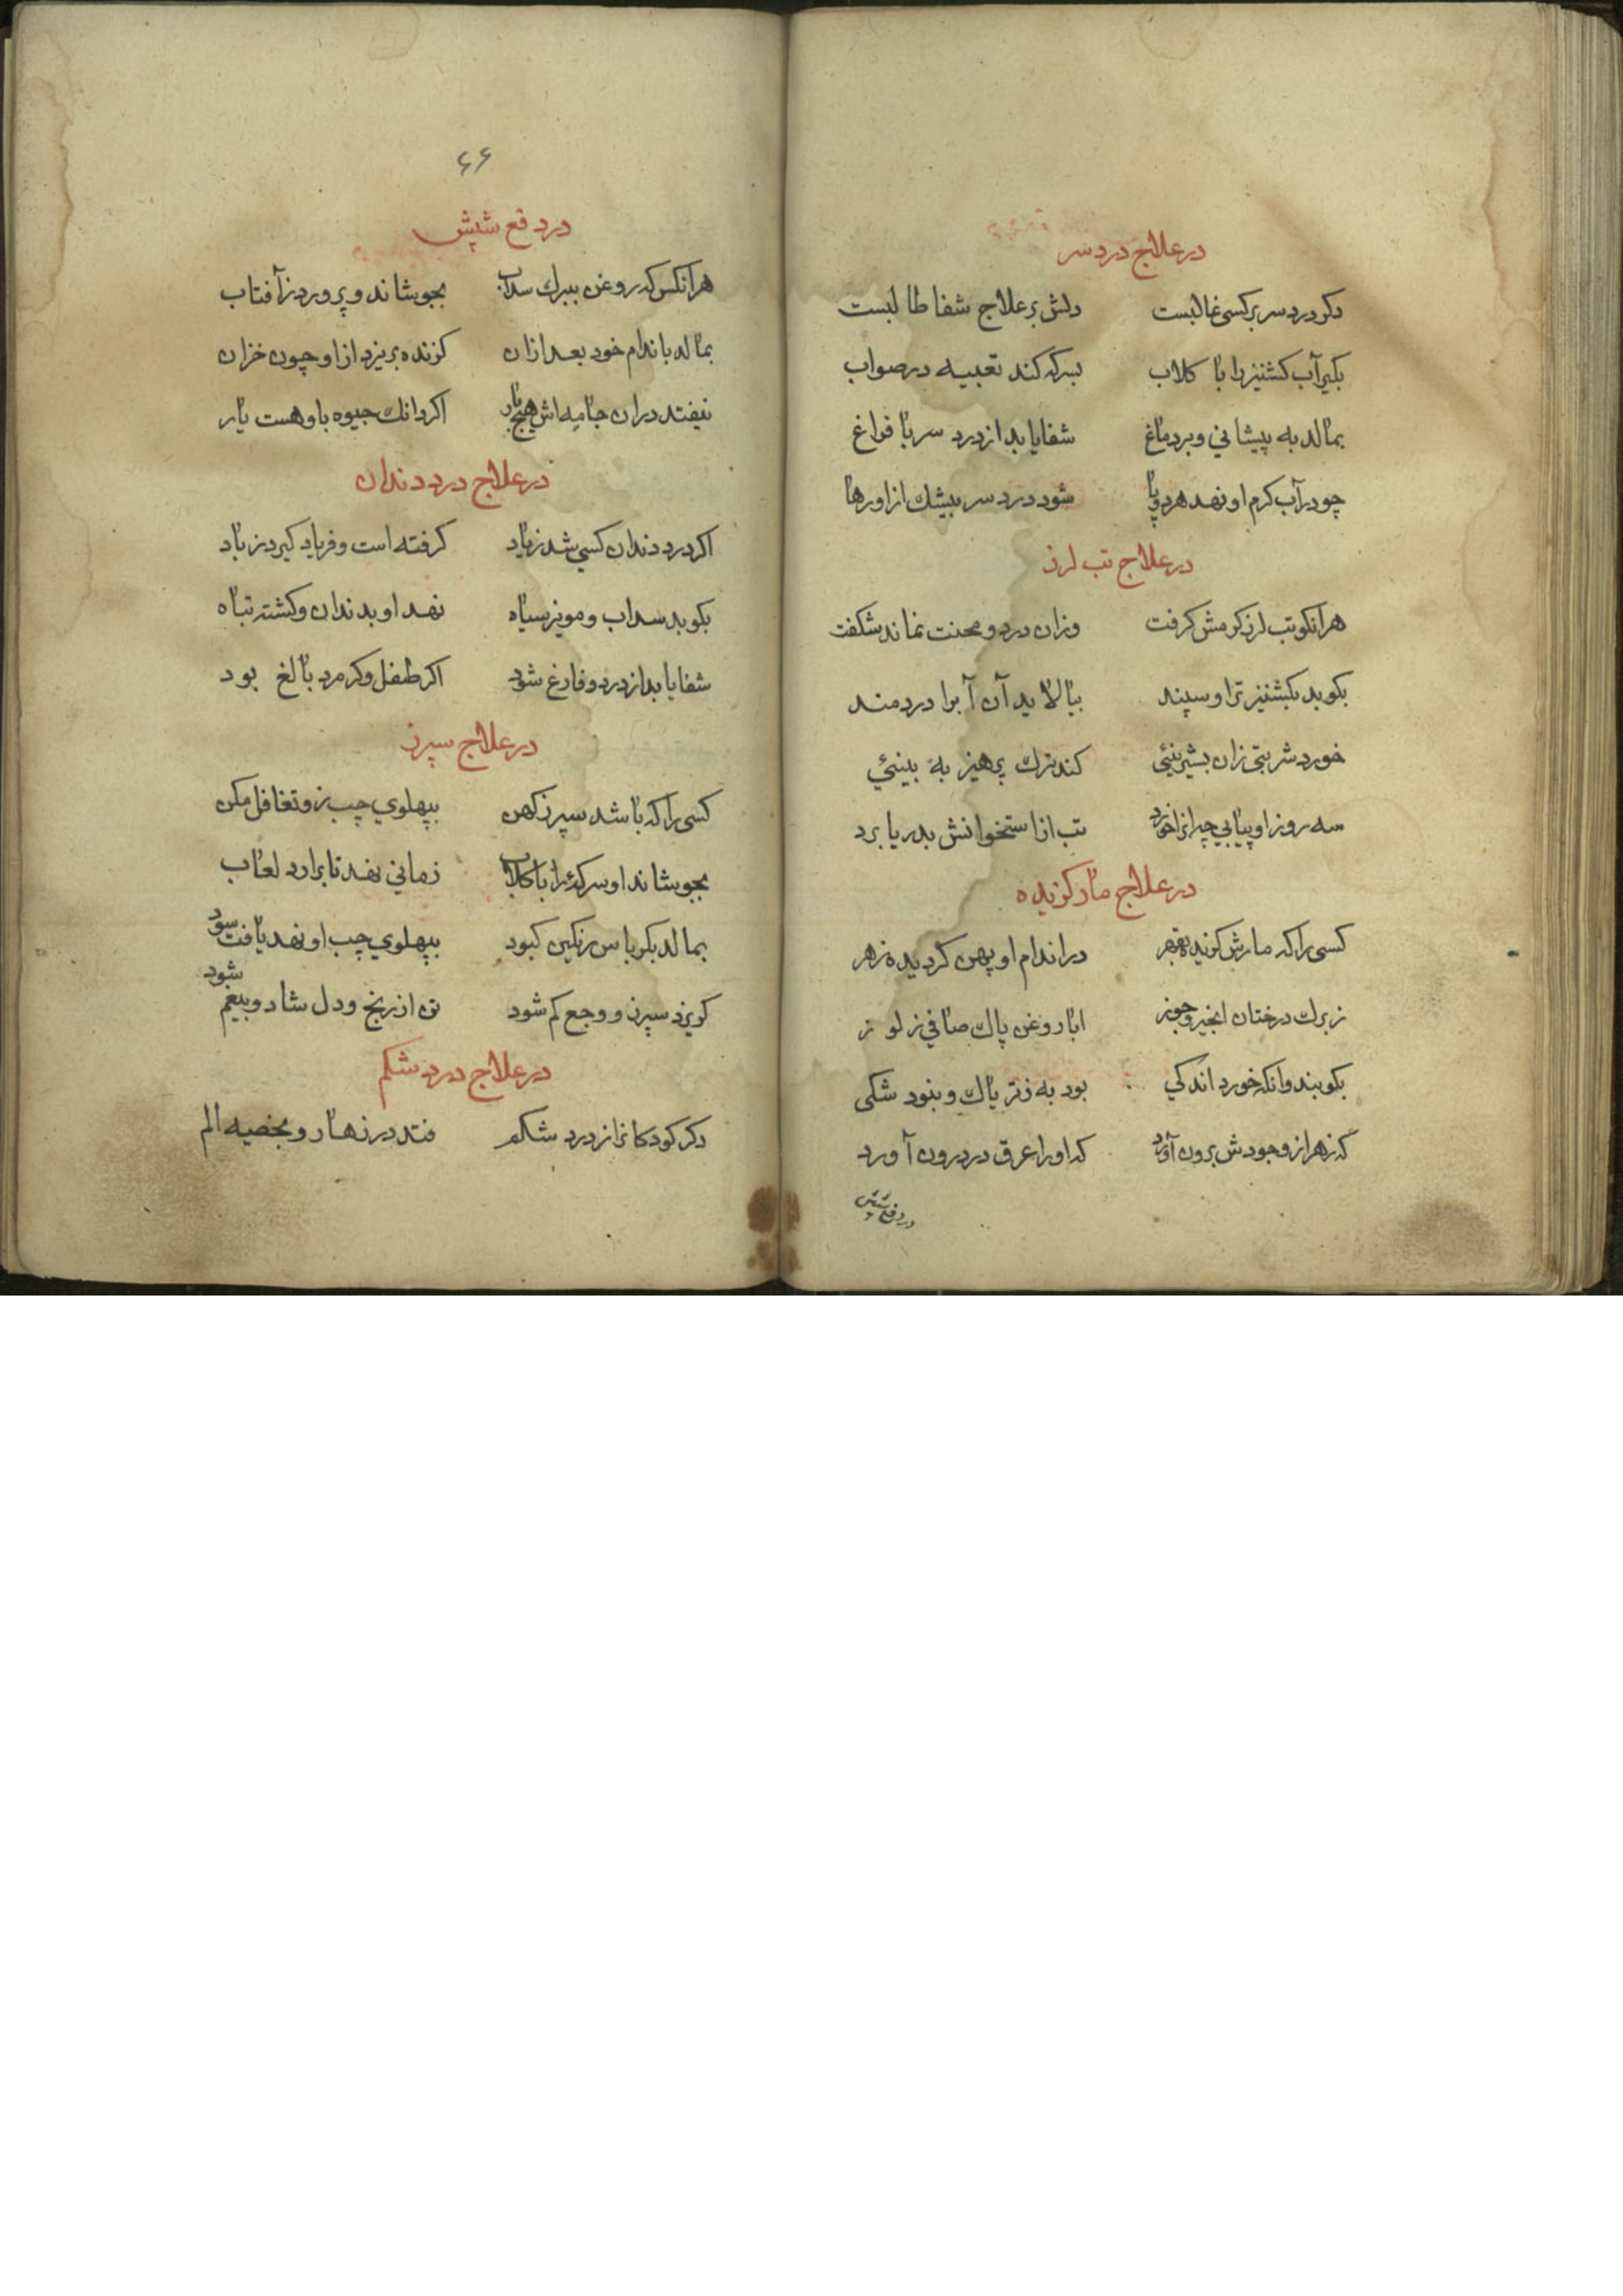 در علاج درد سر
دکر درد سر بر کسی غالبست دلش بر علاج شفا طالبست
بکیر آب کشنیز را با کلاب بسرکه کند تعبیه در صواب
بمالد به پیشانی و بر دماغ شفا یابد از درد سر با فراغ
چو در آب کرم او نهد هر دو پا شود درد سر بیشک از او رها
در علاج تب لرز
هر آنکو تب لرز کرمش کرفت وزان درد و محنت نماند شکفت
بکوبد بکشنیز تر او سپند بیالاید آن آبرا دردمند
خورد شربتی زان بشیرینیٔی کند ترك پرهیز به بینیٔی
سه روز او پیاپی چرا زا خورد تب از استخوانش بدریا برد
در علاج مار کزیده
کسی را که مارش کزیده بقهر در اندام او پهن کردیده زهر
ز برك درختان انجیر و جوز ابا روغن پاك صافی ز لوز
بکوبند وانکه خورد اندکی بود به ز تریاك و نبود شکی
که زهر از وجودش برون آورد که او را عرق در درون آورد
در دفع شپش
۶۶
در دفع شپش
هر آنکس که روغن ببرك سداب بجوشاند و پرورد ز آفتاب
بمالد باندام خود بعد ازان کزنده بریزد از او چون خزان
نیفتد دران جامه اش هیچ بار اکر دانك جیوه باو هست یار
در علاج درد دندان
اکر درد دندان کسی شد زیاد کرفته است و فریاد کیرد ز باد
بکوبد سداب و مویز سیاه نهد او بدندان و کشته تباه
شفا یابد از درد و فارغ شود اکر طفل و کر مرد بالغ بود
در علاج سپرز
کسی را که باشد سپرز کهن بپهلوی چپ بز و تغافل مکن
بجوشاند او سرکهٔ را با کلاب زمانی نهد تا برارد لعاب
بمالد بکرباس رنکین کبود بپهلوی چپ او نهد یافت سود
کریزد سپرز و وجع کم شود تن از رنج و دل شاد و بیغم شود
در علاج درد شکم
دکر کودکانرا ز درد شکم فتد در زهار و بخصیه الم